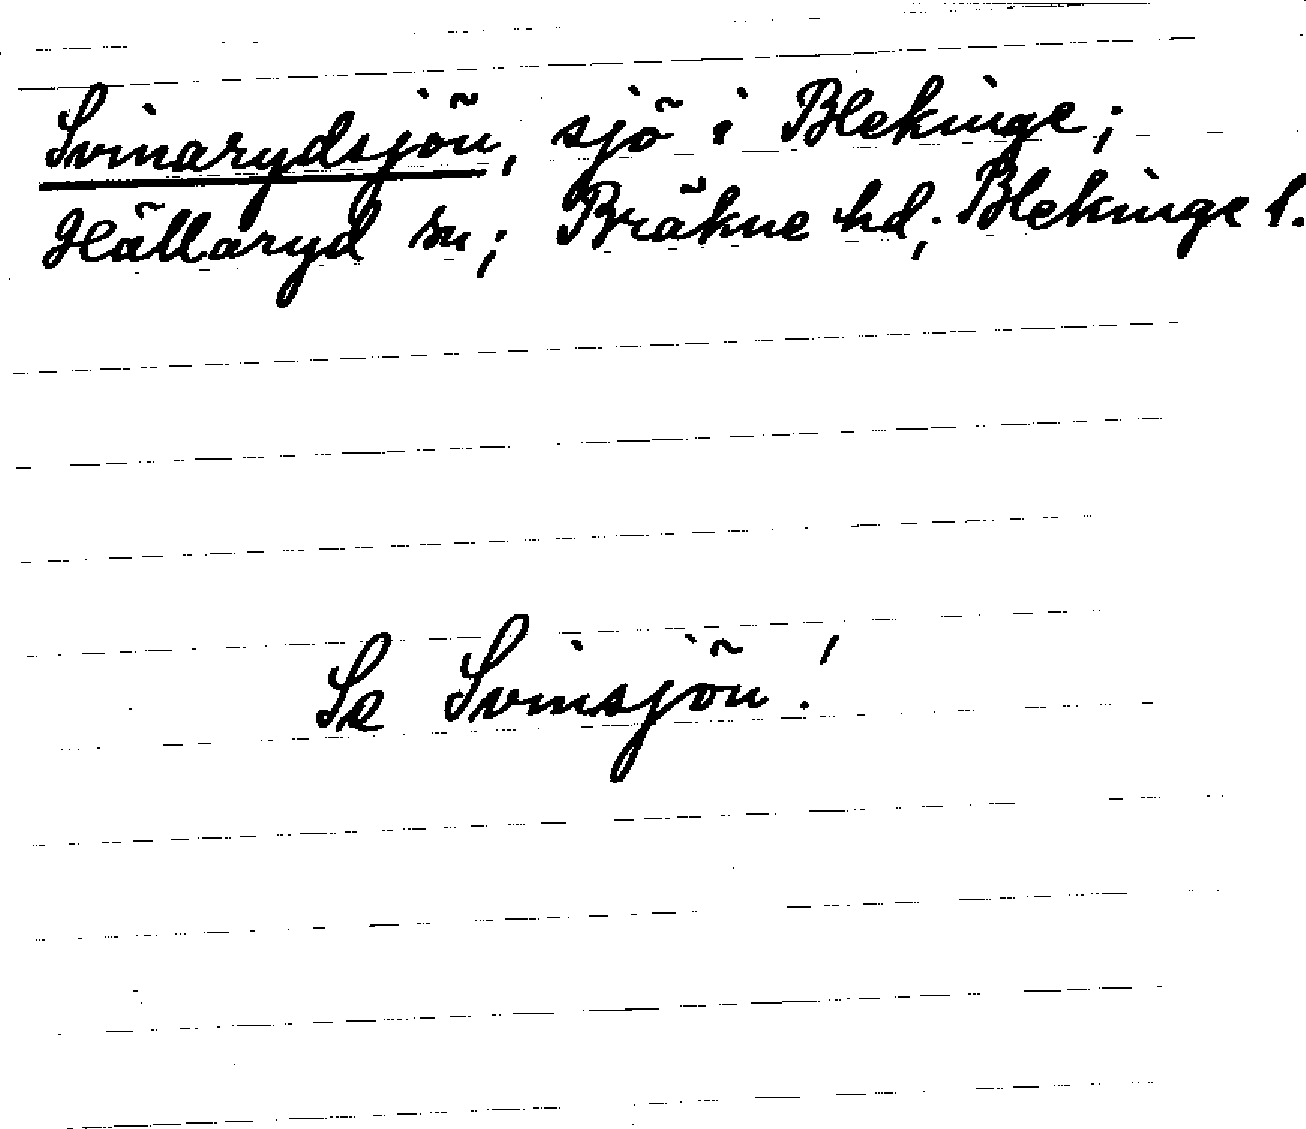 Svinarydsjön, sjö i Blekinge;
Hällaryd sn; Bräkne hd; Blekinge l.
Se Svinsjön!